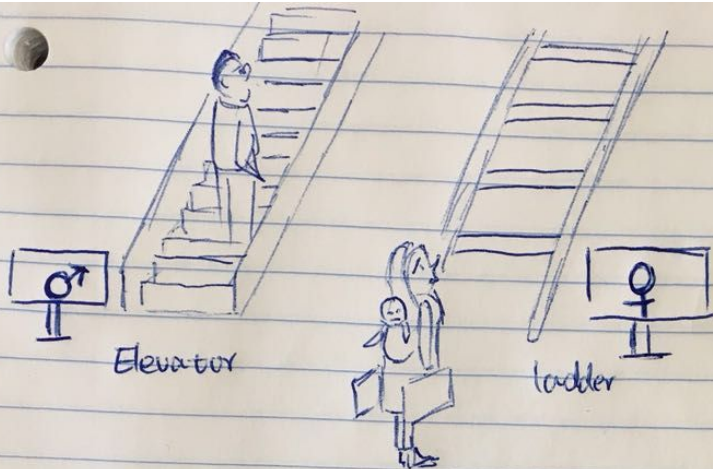 Elevator
ladder